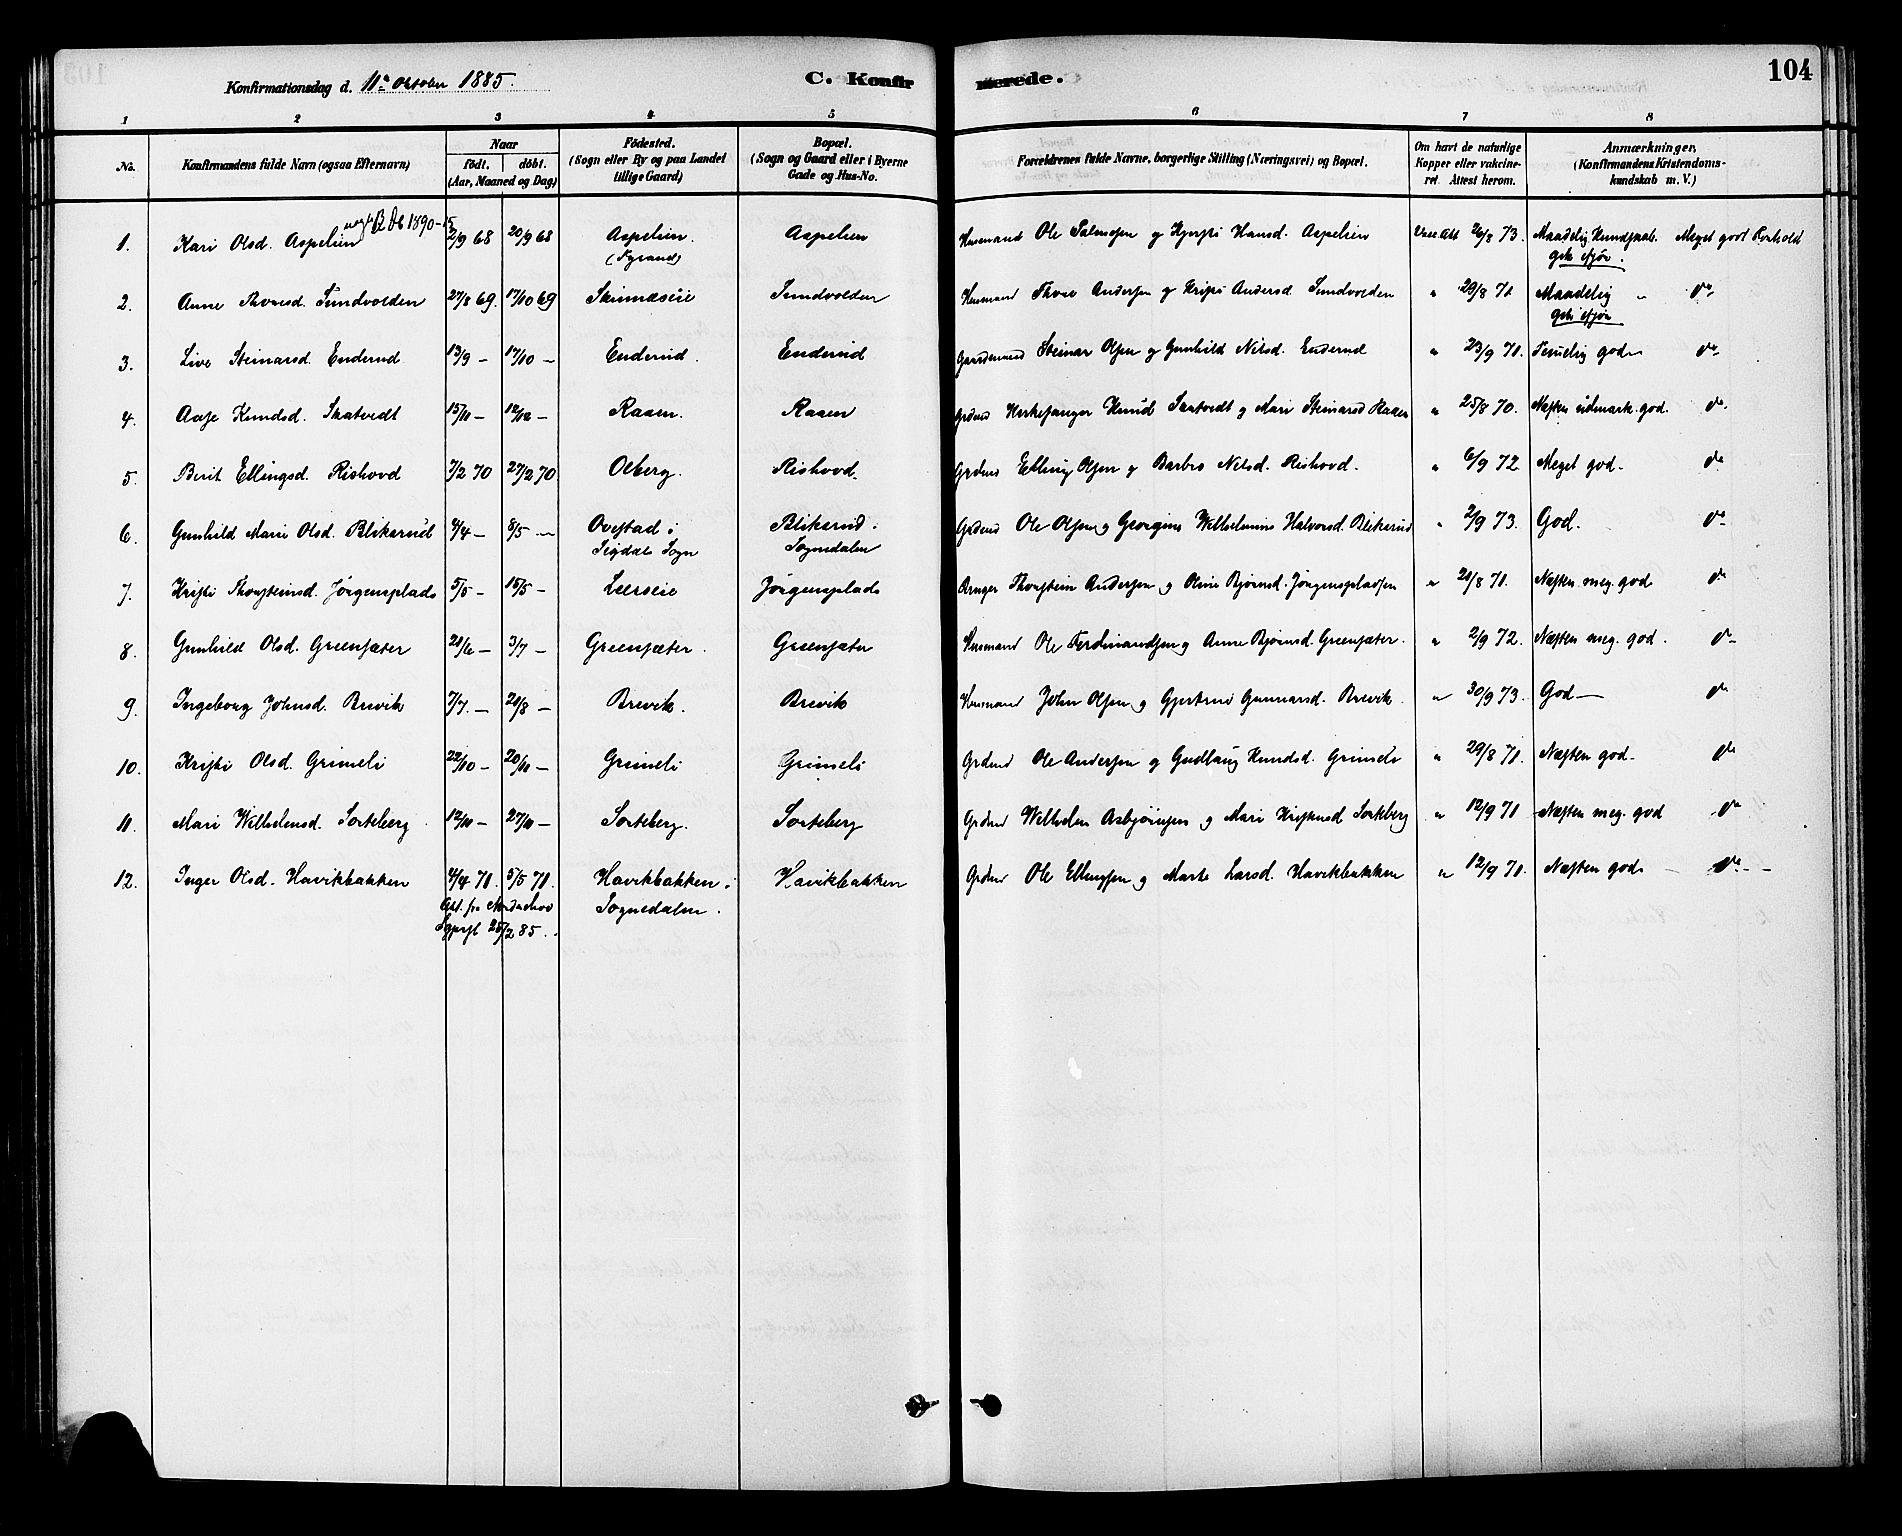 104
Konfirmationsdag d. 11te Oktober 1885.
C. Konfirmerede.
1 2 3 4 5 6 7 8
No. Konfirmandens fulde Navn (ogsaa Efternavn) Naar födt. döbt. (Aar, Maaned og Dag) Födested. (Sogn eller By og paa Landet tillige Gaard) Bopæl. (Sogn og Gaard eller i Byerne Gade og Hus-No. Forældrenes fulde Navne, borgerlige Stilling (Næringsvei) og Bopæl. Om havt de naturlige Kopper eller vakcineret. Attest herom. Anmærkninger, (Konfirmandens Kristendomskundskab m. V.)
1. Kari Olsd. Aspelien 1890 2/9 68 20/9 68 Aspelien. Aspelien Husmand Ole Hansd. Aspelien 26/8 73. Maadelig Kundskab. Meget godt Forhold
2. Anne Thorsd. Sundvolden 27/8 69. 17/10 69 Skinnæseie Sundvolden Husmand Thore Andersen og Andersd. Sundvolden " 29/8 71. Maadelig " do
3. Live Steinarsd. Enderud 13/9 — 17/10 — Enderud. Enderud Gaardmand Steinar Olsen og Gunhild Nilsd. Enderud " 23/9 71. Temelig god do
4. Aase Knudsd. Skatvedt 15/11 — 12/12 — Raaen. Raaen Grdmd Kirkesanger Knud Skatvedt og Mari Steinarsd Raaen " 25/8 70. Næsten udmærk. god. do
5. Berit Ellingsd. Rishovd 7/2 70 27/2 70 Olberg. Rishovd. Grdmd Elling Olsen og Barbro Nilsd. Rishovd. " 6/9 72 Meget god. do
6. Gunhild Mari Olsd. Blikerud 4/4 — 8/5 — Ovestad i Sigdals Sogn Blikerud. Sognedalen Grdmd Ole Olsen og Georgine Wilhelmine Halvorsd. Blikerud " 2/9 73. God. do
7. Kristi Thorsteinsd. Jörgensplads 5/5 — 15/5 — Leerseie Jörgensplads Bruger Thorstein Andersen og Oline Bjørnsd. Jörgenspladsen " 21/8 71. Næsten meg. god do
8. Gunhild Olsd. Greensæter 21/6 — 3/7 — Greensæter. Greensæter Husmand Ole Ferdinandsen og Anne Bjørnsd. Greensæter. " 2/9 72. Næsten meg. god. do
9. Ingeborg Johnsd. Brevik 7/7. — 21/8 — Brevik. Brevik Husmand John Olsen og Gjertrud Gunnarsd. Brevik. " 30/9 73. God — do
10. Kristi Olsd. Grimeli 22/10 — 20/11 — Grimeli Grimeli Grdmd Ole Andersen og Gudlaug Knudsd. Grimeli " 29/8 71. Næsten god. do
11. Mari Wilhelmsd. Sorteberg 12/11 — 27/11 — Sorteberg. Sorteberg Grdmd Wilhelm Asbjørnsen og Mari Kristensd Sorteberg " 12/9 71 Næsten meg. god do
12. Inger Olsd. Havikbakken 4/4 71. 5/5 71. Havikbakken i Sognedalen. Havikbakken Grdmd Ole Ellingsen og Marte Larsd. Havikbakken " 12/9 71. Næsten god. do
Att. fra Norderhov
Sgprstl 25/2 85.